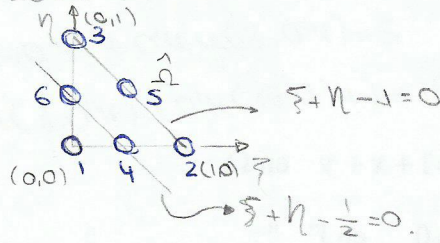 η (0,1)
3
6 5 Ω̂
ξ+η-1=0
(0,0) 1 4 2(1,0) ξ
ξ+η-1/2=0.